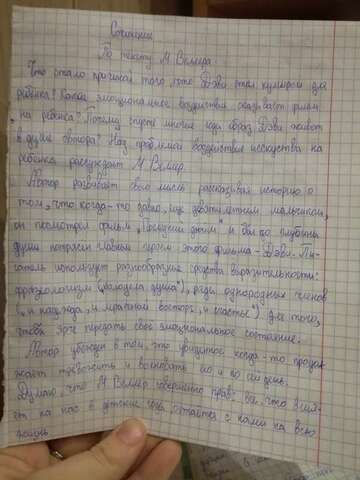 Сочинение
По тексту М Веллера.
Что стало причиной того, что Дэви стал кумиром для
ребёнка? Какое эмоциональное воздействие оказывает фильм
на ребёнка? Почему спустя многие года образ Дэви живёт
в душе автора? Над проблемой воздействия исскуства на
ребенка рассуждает М Веллер.
Автор развивает свою мысль рассказывая историю о
том, что когда-то давно, ещё девятилетним мальчиком,
он посмотрел фильм "Последний дюйм" и был до глубины
души потрясен главным героем этого фильма - Дэви. Пи-
сатель использует разнообразные средства выразительности:
фразеологизм ( душа"), ряды однородных членов
("и надежда, и мрачный восторг, и счастье") для того,
чтобы ярче передать своё эмоциональное состояние.
Автор убежден в том, что увиденное когда-то продол
жает тревожить и волновать его и по сей день.
Думаю, что М Веллер совершенно прав: всё, что влия-
ет на нас в детские года, остаётся с нами на всю
жизнь.